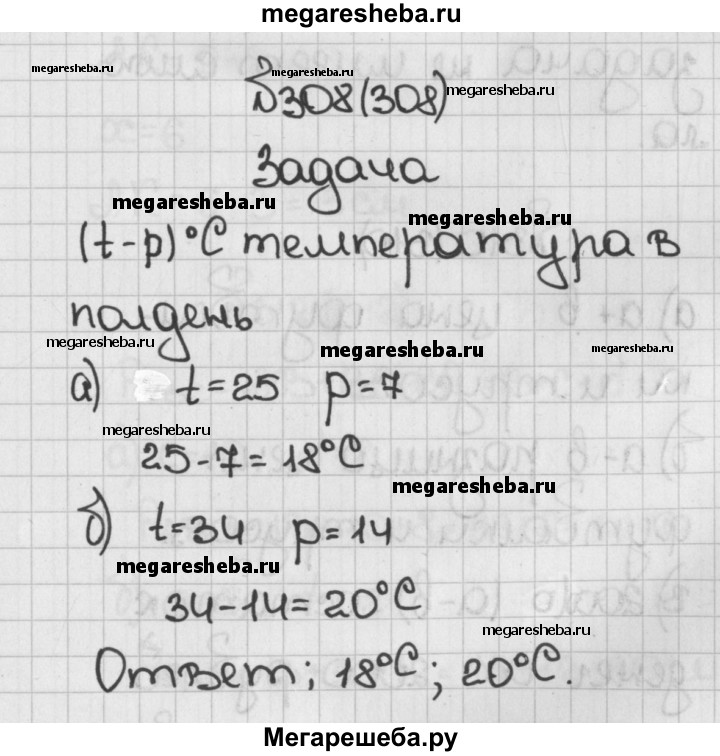 megaresheba.ru
megaresheba.ru
megaresheba.ru
№308(308) megaresheba.ru
Задача
megaresheba.ru
megaresheba.ru
(t-p)°C температура в
полдень
megaresheba.ru
megaresheba.ru
megaresheba.ru
а) t=25 p=7
megaresheba.ru
25-7=18°C
megaresheba.ru
б) t=34 p=14
megaresheba.ru
34-14=20°C
megaresheba.ru
Ответ; 18°C; 20°C.
Мегарешеба.ру